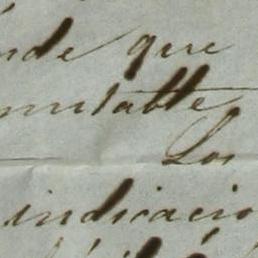 nde que
mutable
Los
indicacio